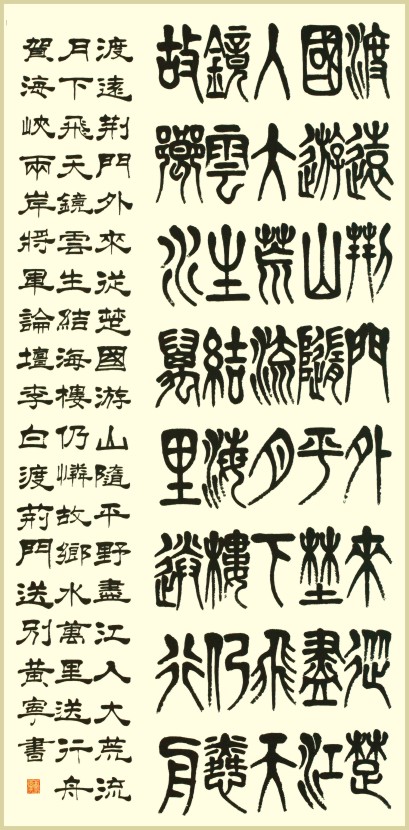 渡遠荊門外來從楚
國遊山隨平埜盡江
入大荒流月下飛天
鏡雲生結海樓仍憐
故鄉水萬里送行舟
渡遠荊門外來從楚國游山隨平野盡江入大荒流
月下飛天鏡雲生結海樓仍憐故鄉水萬里送行舟
賀海峽兩岸將軍論壇李白渡荊門送別黃寧書